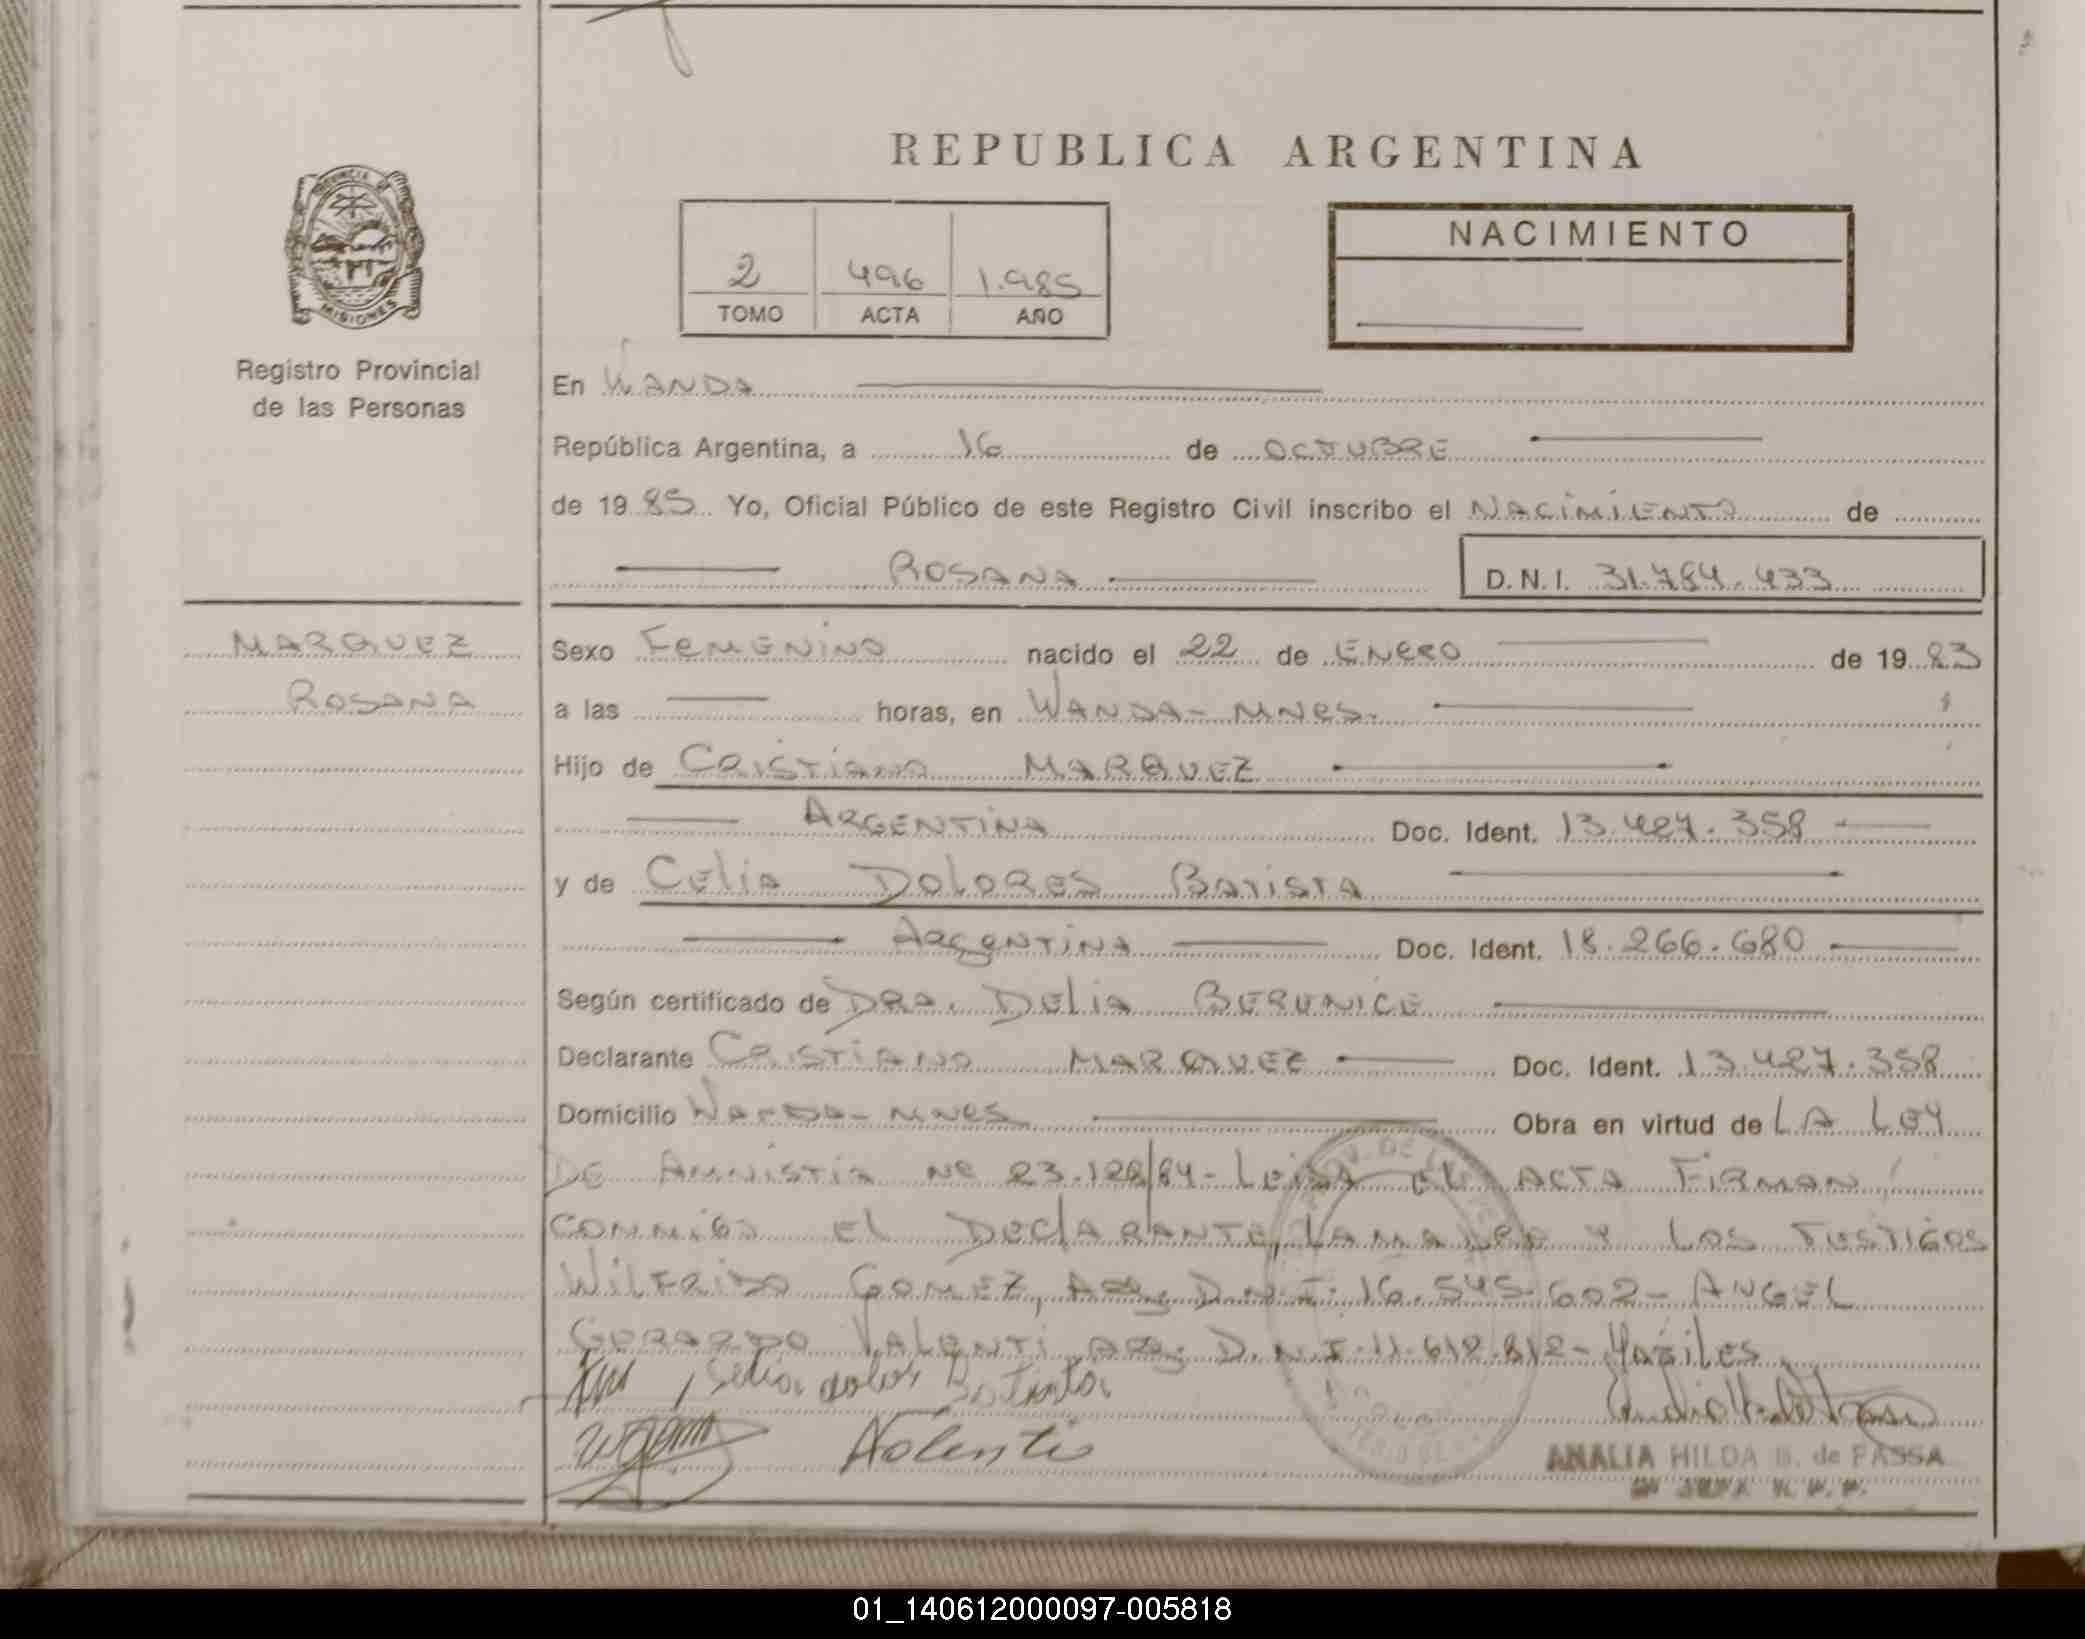 REPUBLICA ARGENTINA
PROVINCIA DE
MISIONES
Registro Provincial
de las Personas
2 496 1.985
TOMO ACTA AÑO
NACIMIENTO
En WANDA
República Argentina, a 16 de OCTUBRE
de 1985 Yo, Oficial Público de este Registro Civil inscribo el NACIMIENTO de
ROSANA D.N.I. 31.784.433
MARQUEZ
ROSANA
Sexo FEMENINO nacido el 22 de ENERO de 1983
a las horas, en WANDA - MNES.
Hijo de CRISTIANO MARQUEZ
ARGENTINA Doc. Ident. 13.427.358
y de CELIA DOLORES BATISTA
ARGENTINA Doc. Ident. 18.266.680
Según certificado de DRA. DELIA BERENICE
Declarante CRISTIANO MARQUEZ Doc. Ident. 13.427.358
Domicilio WANDA - MNES Obra en virtud de LA LEY
DE AMNISTIA Nº 23.128/84 - LEIDA EL ACTA FIRMAN
CONMIGO EL DECLARANTE, LA MADRE Y LOS TESTIGOS
WILFRIDO GOMEZ, ARG. D.N.I. 16.545.602 - ANGEL
GERARDO VALENTI ARG. D.N.I. 11.612.812 -
Valenti
ANALIA HILDA B. de FASSA
01_140612000097-005818